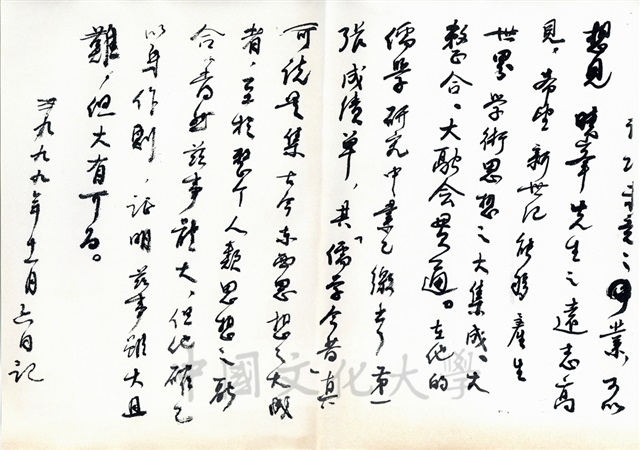 業，可以
想見曉峯先生之遠志高
見，希望新世紀能夠產生
世界學術思想之大集成、大
整合、大融會貫通。在他的
儒學研究中業已繳出了第一
張成績單，其「儒學今昔」真
可說是集古今東西思想之大成
者，至於整个人類思想之融
合，書出茲事體大，但他確已
以身作則，證明茲事雖大且
難，但大有可為。
一九九九年十二月六日記
中國文化大學